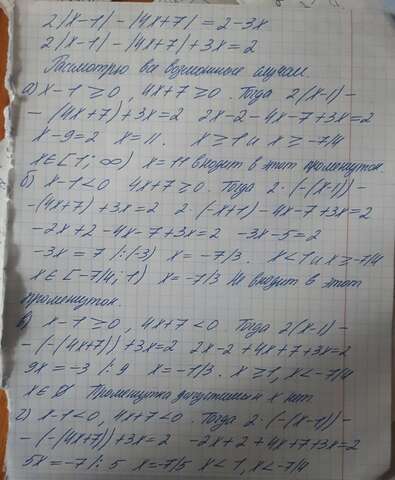 2|x-1| - |4x+7| = 2-3x
2|x-1| - |4x+7| + 3x = 2
Рассмотрю все возможные случаи.
а) x-1 ≥ 0, 4x+7 ≥ 0. Тогда 2(x-1) -
- (4x+7) + 3x = 2 2x-2-4x-7+3x=2
x-9=2 x=11. x ≥ 1 и x ≥ -7/4
x∈[1; ∞) x=11 входит в этот промежуток.
б) x-1<0 4x+7 ≥ 0. Тогда 2·(-(x-1)) -
-(4x+7) + 3x = 2 2·(-x+1) - 4x-7+3x=2
-2x+2-4x-7+3x=2 -3x-5=2
-3x = 7 /:(-3) x = -7/3. x<1 и x ≥ -7/4
x∈[-7/4; 1) x = -7/3 не входит в этот
промежуток.
в) x-1 ≥ 0, 4x+7 < 0. Тогда 2(x-1) -
- (-(4x+7)) + 3x = 2 2x-2+4x+7+3x=2
9x = -3 /:9 x = -1/3. x ≥ 1, x < -7/4
x∈∅ Промежутка допустимых x нет.
г) x-1<0, 4x+7<0. Тогда 2·(-(x-1)) -
- (-(4x+7)) + 3x = 2 -2x+2+4x+7+3x=2
5x = -7 /:5 x = -7/5 x < 1, x < -7/4